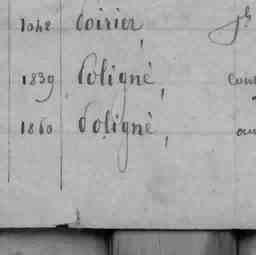 1042 Poirier, Jh
1839 Poligné,
1860 Poligné,